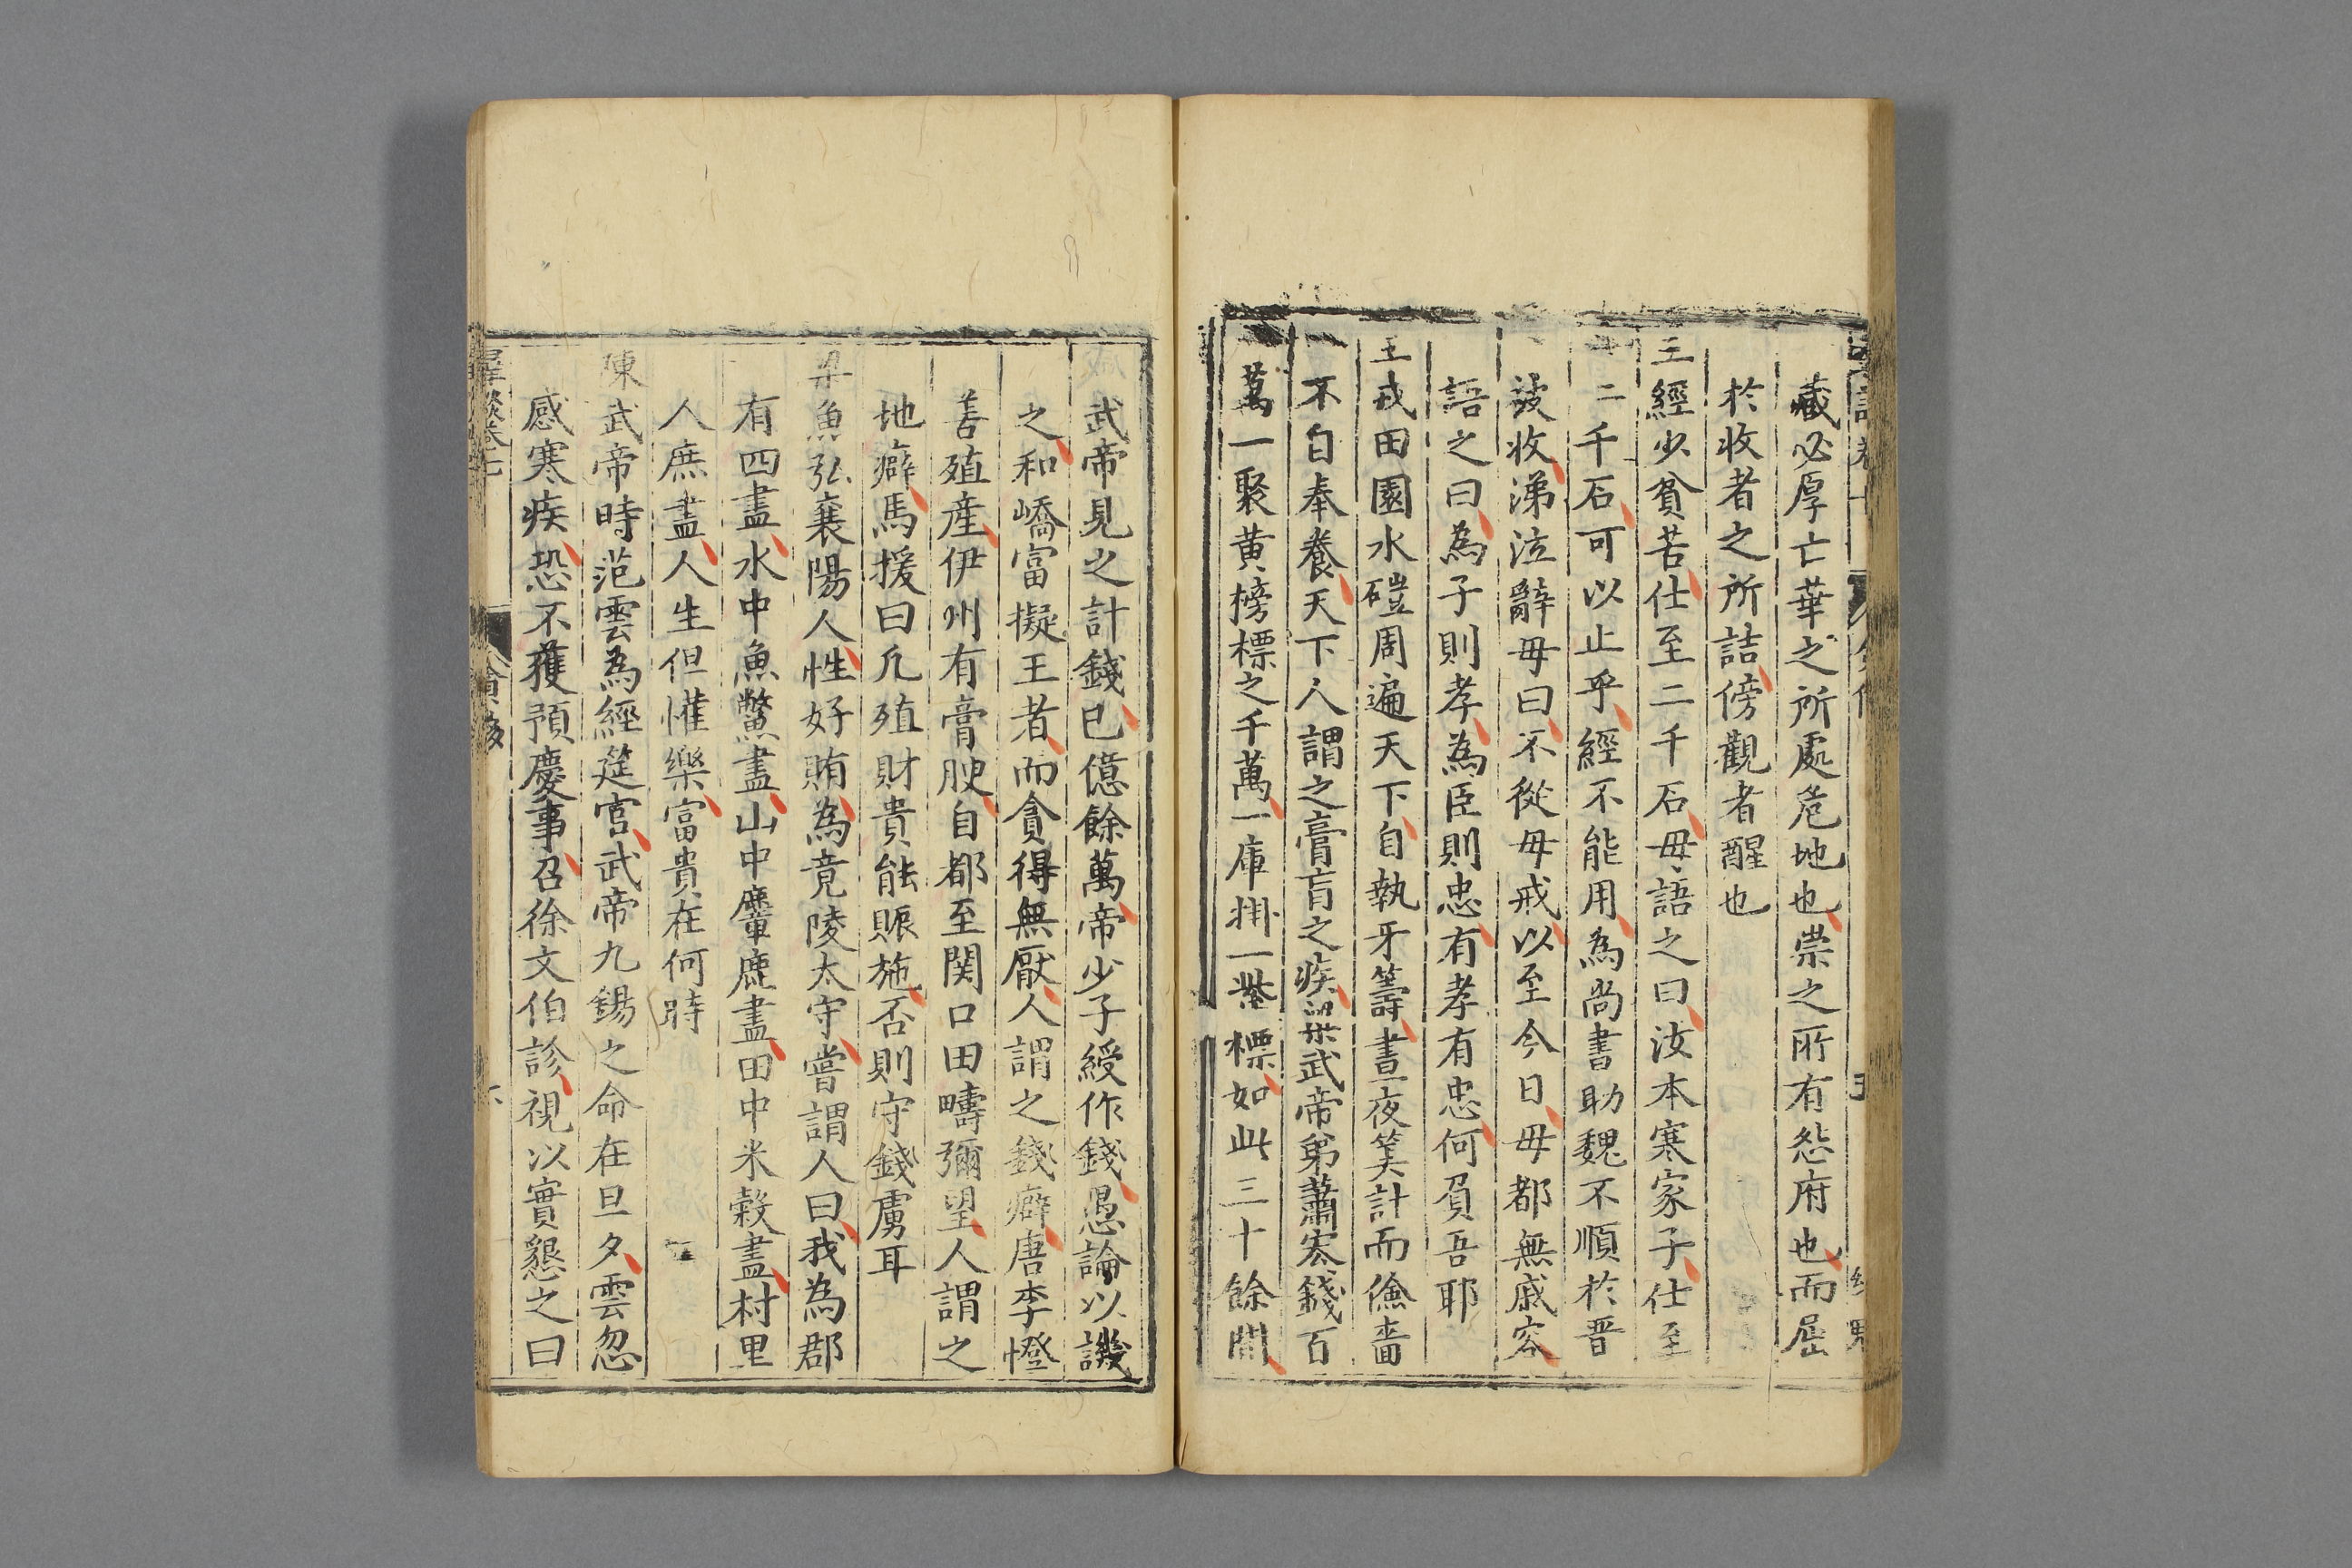 藏必厚亡華之所處危地也崇之所有怨府也而屈
於收者之所詰傍觀者醒也
王經少貧苦仕至二千石母語之曰汝本寒家子仕至
二千石可以止乎經不能用為尚書助魏不順於晋
被收涕泣辭母曰不從母戒以至今日母都無戚容
語之曰為子則孝為臣則忠有孝有忠何負吾耶
王戎田園水磑周遍天下自執牙籌晝夜筭計而儉嗇
不自奉養天下人謂之膏肓之疾梁武帝弟蕭宏錢百
萬一聚黄榜標之千萬一庫掛一紫標如此三十餘間
武帝見之計錢已億餘萬帝少子綬作錢愚論以譏
之和嶠富擬王者而貪得無厭人謂之錢癖唐李憕
善殖産伊州有膏腴自都至関口田疇彌望人謂之
地癖馬援曰凡殖財貴能賑施否則守錢虜耳
梁魚弘襄陽人性好賄為竟陵太守嘗謂人曰我為郡
有四盡水中魚鱉盡山中麞鹿盡田中米榖盡村里
人庶盡人生但懽樂富貴在何時
陳武帝時范雲為經筵官武帝九錫之命在旦夕雲忽
感寒疾恐不獲預慶事召徐文伯診視以實懇之曰